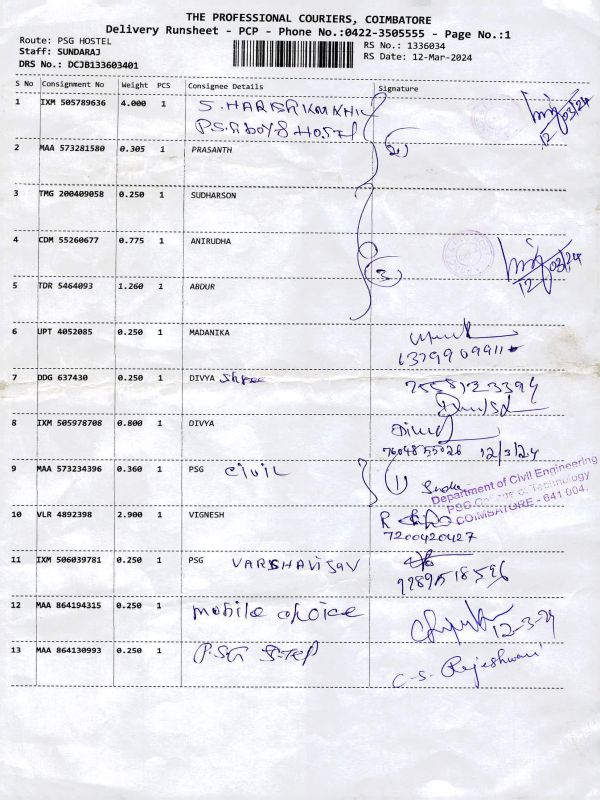 THE PROFESSIONAL COURIERS, COIMBATORE
Delivery Runsheet - PCP - Phone No.:0422-3505555 - Page No.:1
Route: PSG HOSTEL
Staff: SUNDARAJ
DRS No.: DCJB133603401
RS No.: 1336034
RS Date: 12-Mar-2024
S No Consignment No Weight PCS Consignee Details Signature
1 IXM 505789636 4.000 1 S. HARISH
HOSTEL
12/03/24
2 MAA 573281580 0.305 1 PRASANTH 2)
3 TMG 200409058 0.250 1 SUDHARSON
4 CDM 55260677 0.775 1 ANIRUDHA
3) 12/03/24
5 TDR 5464093 1.260 1 ABDUR
6 UPT 4052085 0.250 1 MADANIKA
7 DDG 637430 0.250 1 DIVYA Shree
8 IXM 505978708 0.800 1 DIVYA
12/3/24
9 MAA 573234396 0.360 1 PSG CIVIL 1)
Department of Civil Engineering
PSG College of Technology
COIMBATORE - 641 004.
10 VLR 4892398 2.900 1 VIGNESH R
7200420427
11 IXM 506039781 0.250 1 PSG
12 MAA 864194315 0.250 1 mobile choice
12-3-24
13 MAA 864130993 0.250 1 P.SG STEP
C-S. Rajeshwari